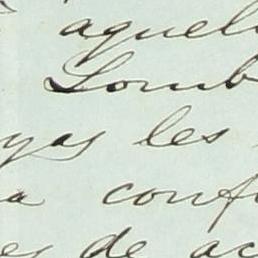 aquel
Lomb
yas les
a conf
es de ac